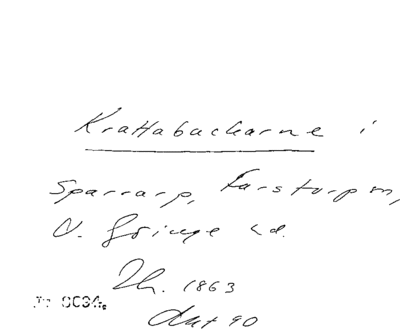 Krattabackarne i
Sparrarp, Farstorp sn,
V. Göinge hd.
Th. 1863
Ant 90